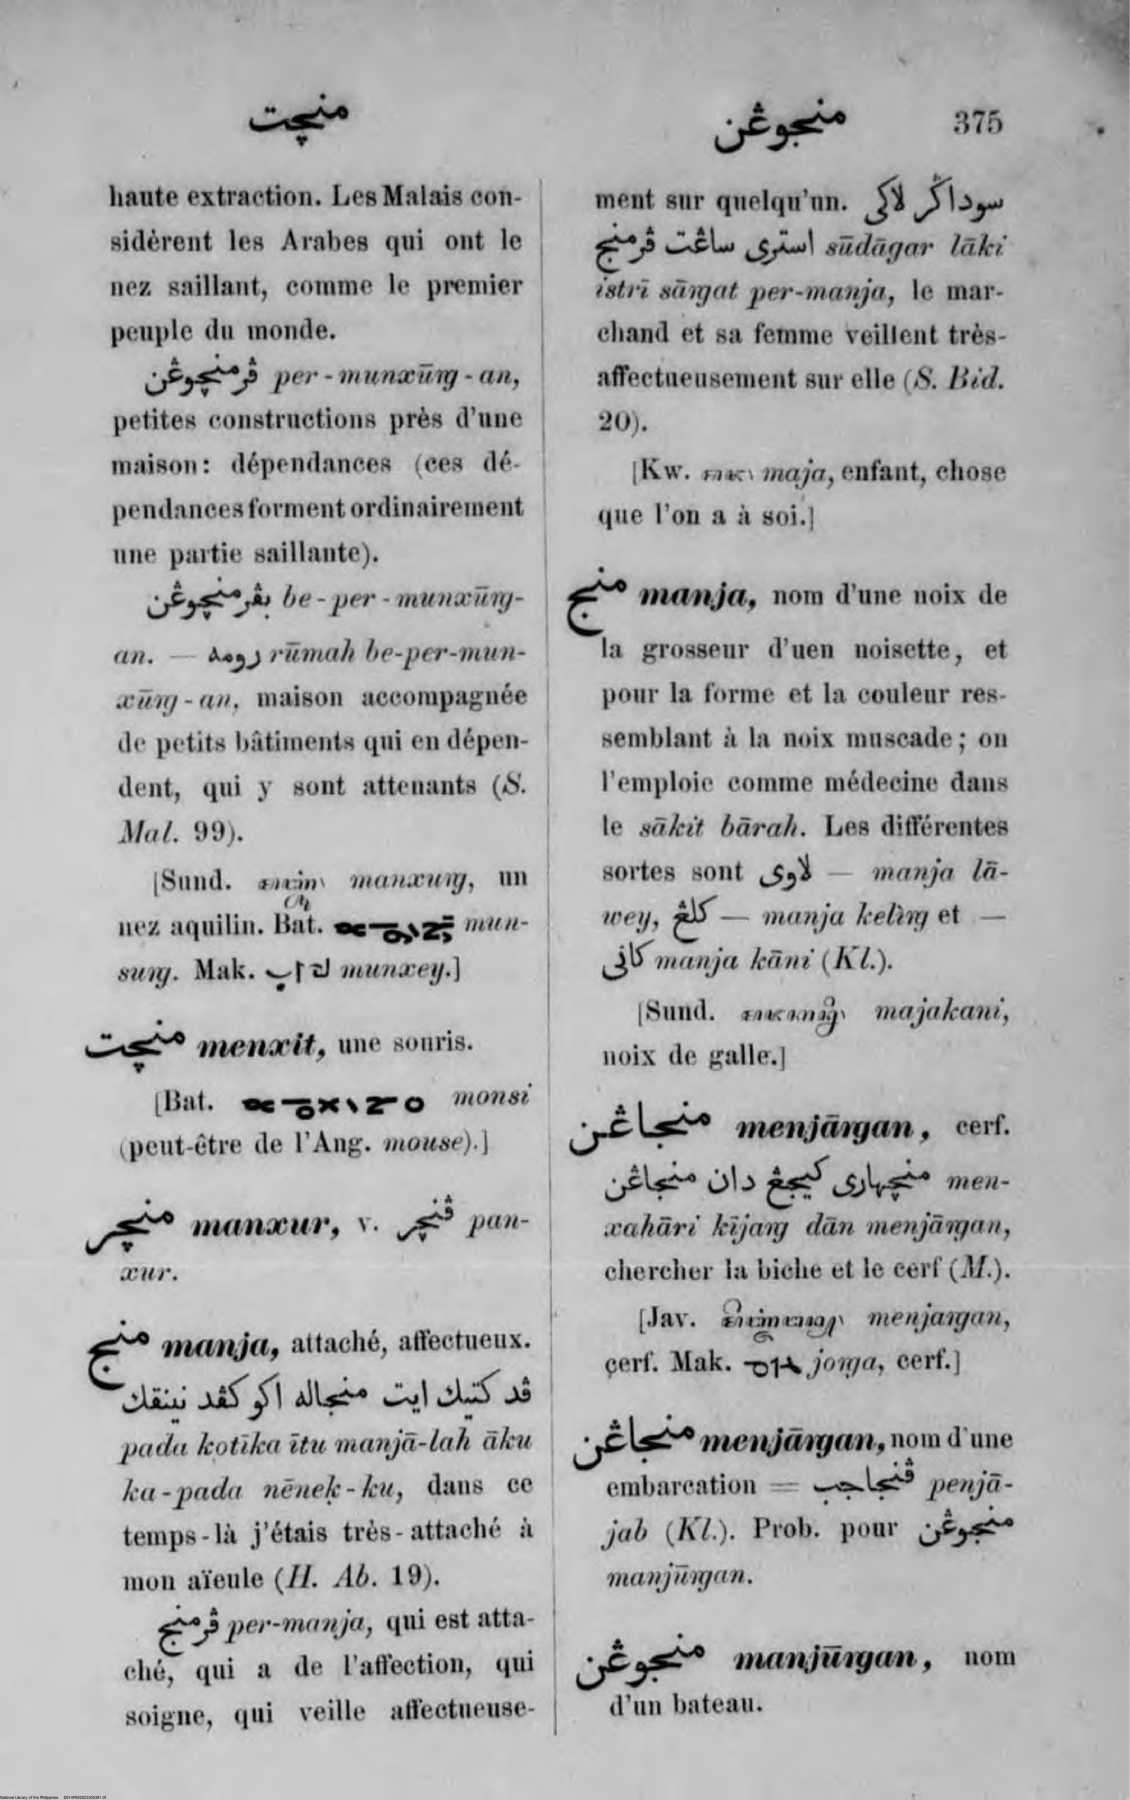 منچت
منجوڠن
375
haute extraction. Les Malais con-
sidèrent les Arabes qui ont le
nez saillant, comme le premier
peuple du monde.
ڤرمنچوڠن per-munxūrg-an,
petites constructions près d'une
maison: dépendances (ces dé-
pendances forment ordinairement
une partie saillante).
بڤرمنچوڠن be-per-munxūrg-
an. — رومه rūmah be-per-mun-
xūrg-an, maison accompagnée
de petits bâtiments qui en dépen-
dent, qui y sont attenants (S.
Mal. 99).
[Sund. manxurg, un
nez aquilin. Bat. mun-
surg. Mak. munxey.]
منچت menxit, une souris.
[Bat. monsi
(peut-être de l'Ang. mouse).]
منچر manxur, v. ڤنچر pan-
xur.
منج manja, attaché, affectueux.
ڤد كتيك ايت منجاله اكو كڤد نينقك
pada kotīka ītu manjā-lah āku
ka-pada nēnek-ku, dans ce
temps-là j'étais très-attaché à
mon aïeule (H. Ab. 19).
ڤرمنج per-manja, qui est atta-
ché, qui a de l'affection, qui
soigne, qui veille affectueuse-
ment sur quelqu'un. سوداڬر لاكى
استرى ساڠت ڤرمنج sūdāgar lāki
istrī sārgat per-manja, le mar-
chand et sa femme veillent très-
affectueusement sur elle (S. Bid.
20).
[Kw. maja, enfant, chose
que l'on a à soi.]
منج manja, nom d'une noix de
la grosseur d'uen noisette, et
pour la forme et la couleur res-
semblant à la noix muscade; on
l'emploie comme médecine dans
le sākit bārah. Les différentes
sortes sont لاوى — manja lā-
wey, كلڠ — manja kelìrg et —
كانى manja kāni (Kl.).
[Sund. majakani,
noix de galle.]
منجاڠن menjārgan, cerf.
منچهارى كيجڠ دان منجاڠن men-
xahāri kījarg dān menjārgan,
chercher la biche et le cerf (M.).
[Jav. menjargan,
cerf. Mak. jorga, cerf.]
منجاڠن menjārgan, nom d'une
embarcation = ڤنجاجب penjā-
jab (Kl.). Prob. pour منجوڠن
manjūrgan.
منجوڠن manjūrgan, nom
d'un bateau.